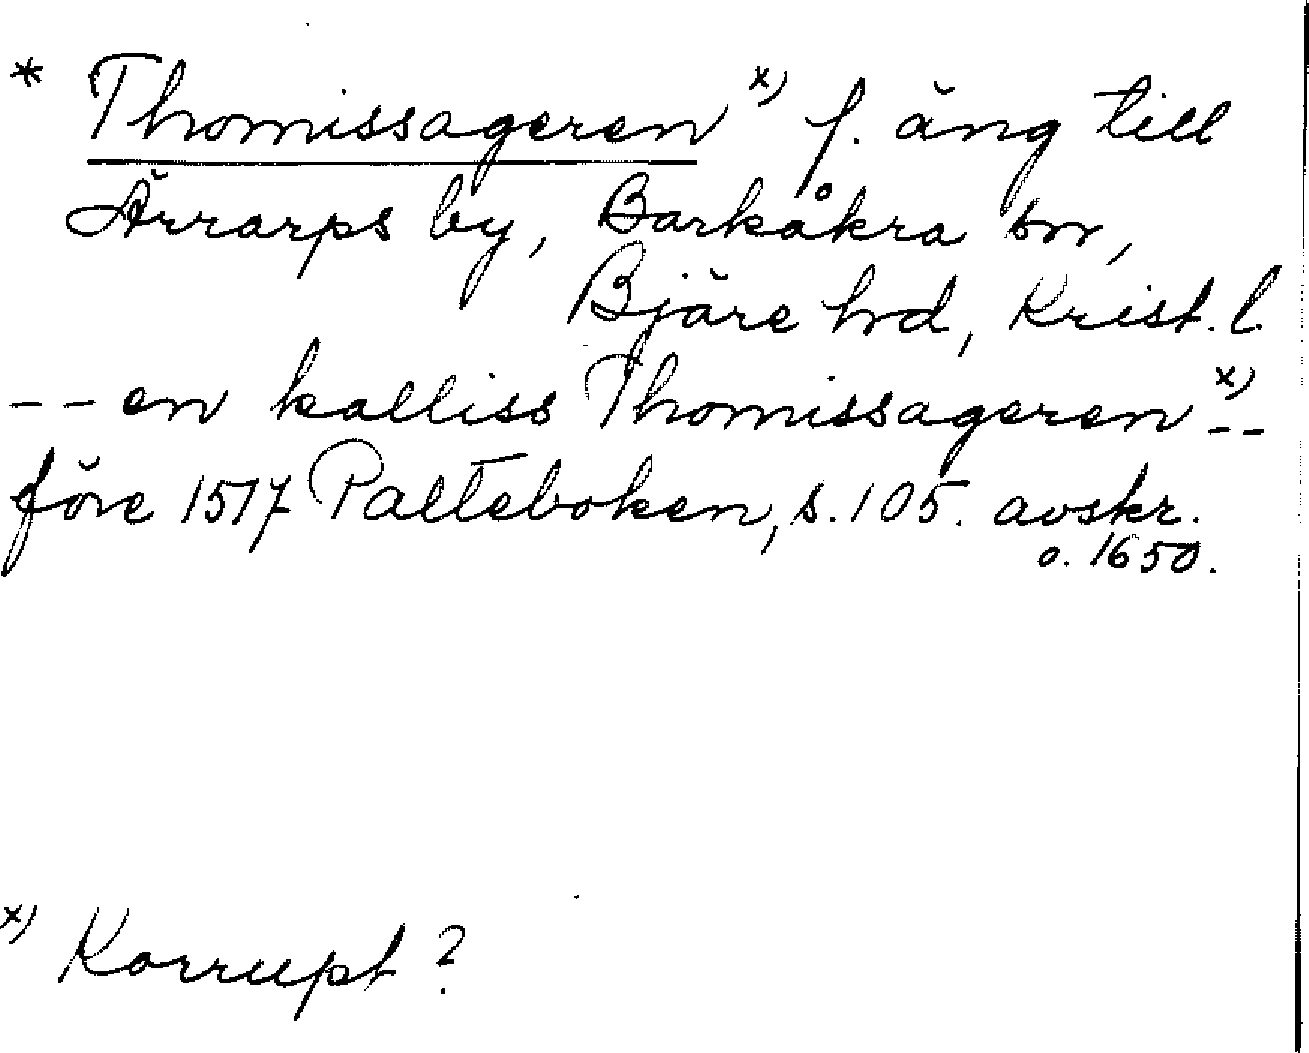 * Thomissageren x) f. äng till
Ärrarps by, Barkåkra sn,
Bjäre hd, Krist. l.
-- en kalliss Thomissageren x) --
före 1517 Palteboken, s. 105. avskr.
o. 1650.
x) Korrupt?